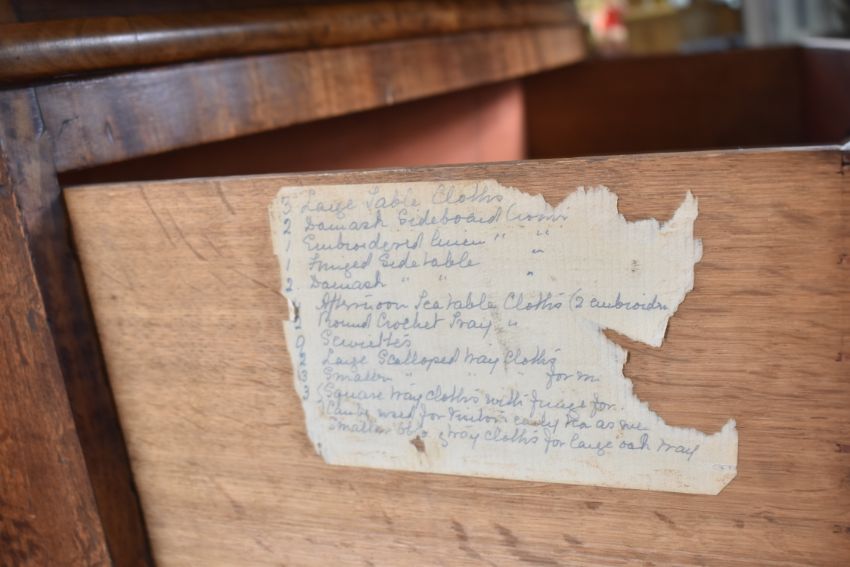 3 Large Table Cloths
2 Damask Sideboard Cloths
1 Embroidered linen " "
1 Fringed Sidetable "
2 Damask " " "
Afternoon Teatable Cloths (2 embroidr
2 Round Crochet Tray "
Serviettes
2 Large Scalloped Tray Cloths
3 Smaller " " " for m
3 Square Tray cloths with fringe for
Can be used for Visitors early tea as
Smaller Tray cloths for large oak tray